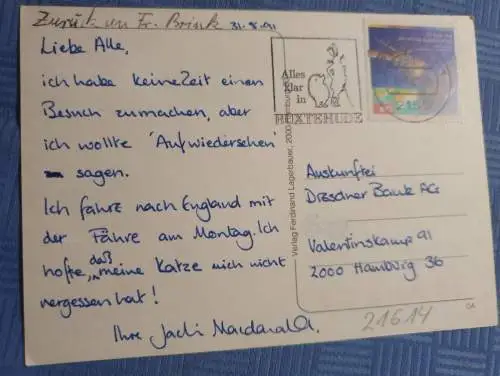 Zurück an Fr. Brink 31.8.91
Liebe Alle,
ich habe keine Zeit einen
Besuch zumachen, aber
ich wollte 'Aufwiedersehen'
sagen.
Ich fähre nach England mit
der Fähre am Montag. Ich
hoffe, daß meine Katze mich nicht
vergessen hat!
Ihre Jacki Macdonald.
Alles
klar
in
BUXTEHUDE
Verlag Ferdinand Lagerbauer, 2000 Hamburg
Auskunftei
Dresdner Bank AG
Valentinskamp 91
2000 Hamburg 36
21614